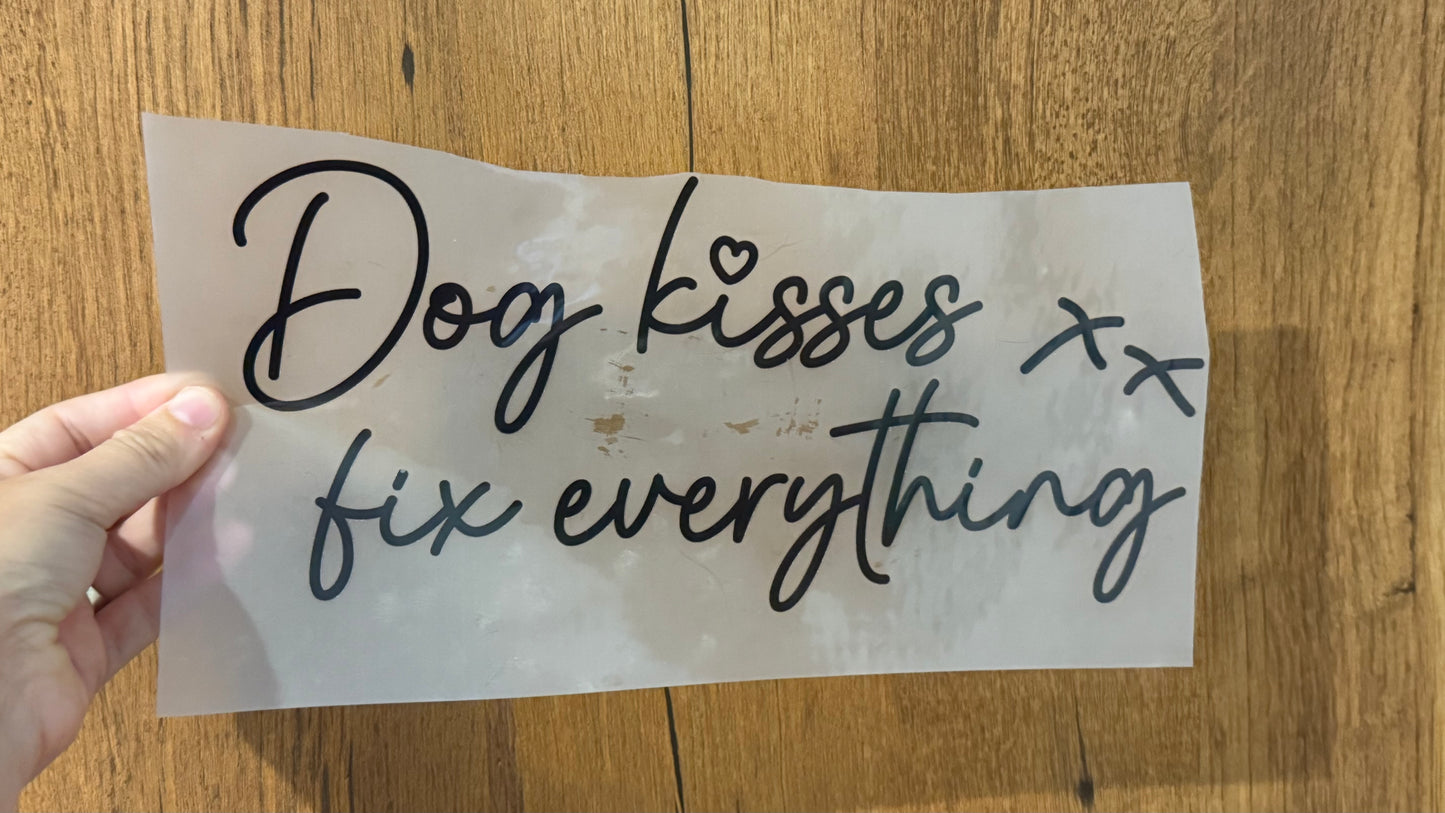 Dog kisses xx
fix everything